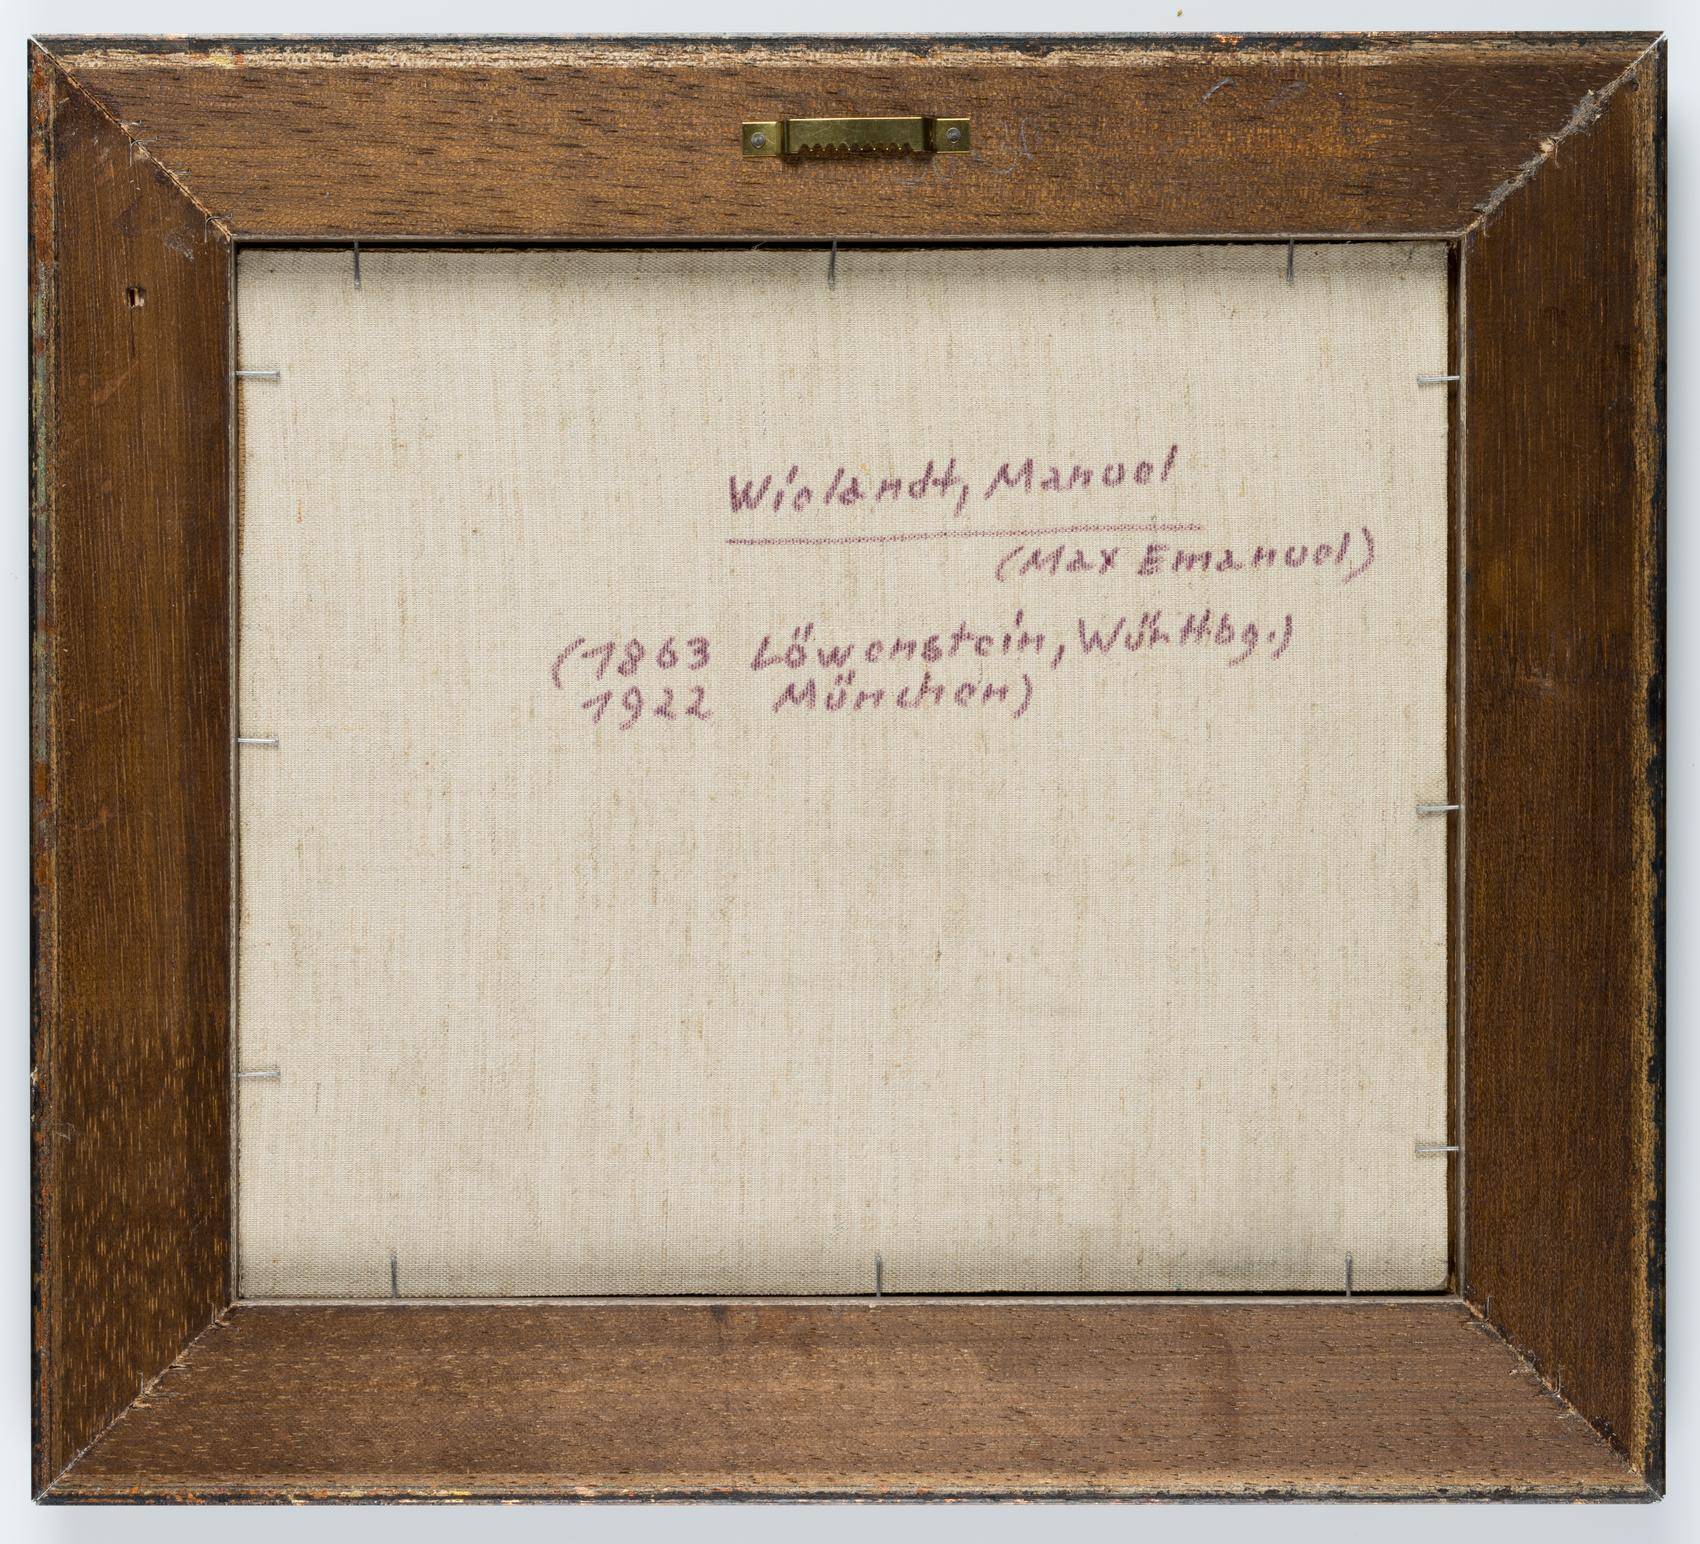 Wielandt, Manuel
(Max Emanuel)
(1863 Löwenstein, Württbg.)
1922 München)